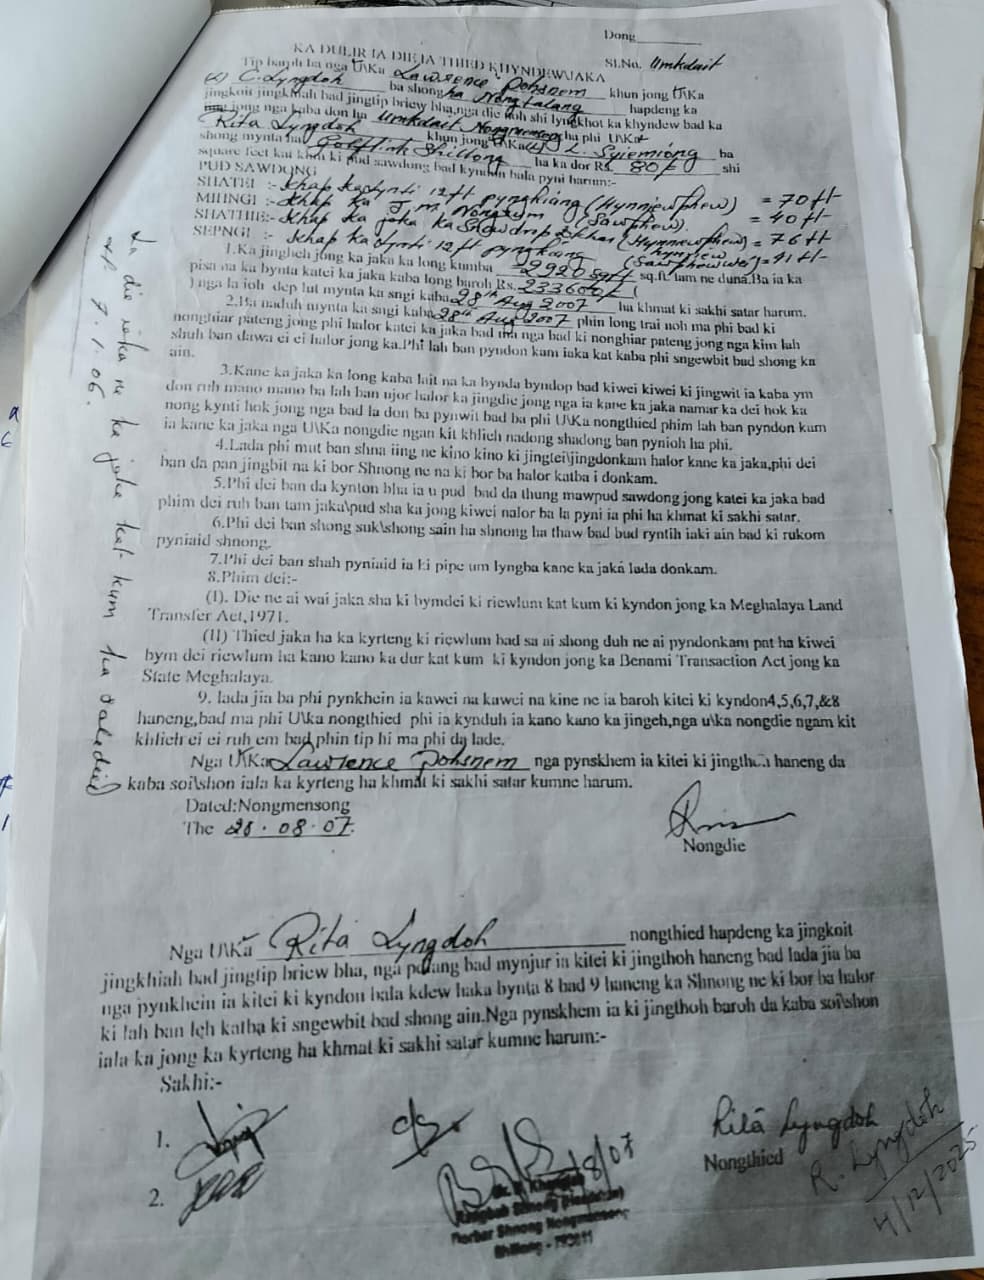 Dong________
KA DULIR IA DIE IA THIED KHYNDEW\JAKA
Sl.No. Umkdait
Tip baroh ba nga U\Ka Lawrence Pohsnem khun jong U\Ka
(L) C. Lyngdoh ba shong ha Nongtalang hapdeng ka
jingkoit jingkhiah bad jingtip briew bha,nga die noh shi lyngkhot ka khyndew bad ka
jong nga kaba don ha Umkdait Nongmensong ha phi U\Ka
Rita Lyngdoh khun jong U\Ka (L) L. Syiemiong ba
shong mynta ha Golflink Shillong ha ka dor Rs. 80/- shi
square feet kat kum ki pud sawdong bad kyndon bala pyni harum:-
PUD SAWDONG
SHATEI :- Khap ka Synti 12 ft pynkiang (Hynniewphew) = 70 ft
MIHNGI :- Khap ka J.M. Nongrum (Sawphew) = 40 ft
SHATHIE:- Khap ka jaka ka Snowdrop Dkhar (Hynniewphew hynriew) = 76 ft
SEPNGI :- Khap ka Synti 12 ft pynkiang (Sawphewwei) = 41 ft
1.Ka jingheh jong ka jaka ka long kumba 2920 sqft sq.ft. tam ne duna.Ba ia ka
pisa na ka bynta katei ka jaka kaba long baroh Rs. 233600/- (
) nga la ioh dep lut mynta ka sngi kaba 28th Aug 2007 ha khmat ki sakhi satar harum.
2.Ba naduh mynta ka sngi kaba 28th Aug 2007 phin long trai noh ma phi bad ki
nonghiar pateng jong phi halor katei ka jaka bad ma nga bad ki nonghiar pateng jong nga kim lah
shuh ban dawa ei ei halor jong ka.Phi lah ban pyndon kam iaka kat kaba phi sngewbit bad shong ka
ain.
3.Kane ka jaka ka long kaba lait na ka bynda byndop bad kiwei kiwei ki jingwit ia kaba ym
don ruh mano mano ba lah ban ujor halor ka jingdie jong nga ia kane ka jaka namar ka dei hok ka
nong kynti hok jong nga bad la don ba pynwit bad ba phi U\Ka nongthied phim lah ban pyndon kum
ia kane ka jaka nga U\Ka nongdie ngan kit khlieh nadong shadong ban pynioh ha phi.
4.Lada phi mut ban shna iing ne kino kino ki jingtei\jingdonkam halor kane ka jaka,phi dei
ban da pan jingbit na ki bor Shnong ne na ki bor ba halor katba i donkam.
5.Phi dei ban da kynton bha ia u pud bad da thung mawpud sawdong jong katei ka jaka bad
phim dei ruh ban tam jaka\pud sha ka jong kiwei nalor ba la pyni ia phi ha khmat ki sakhi satar.
6.Phi dei ban shong suk\shong sain ha shnong ha thaw bad bud ryntih iaki ain bad ki rukom
pyniaid shnong.
7.Phi dei ban shah pyniaid ia ki pipe um lyngba kane ka jaka lada donkam.
8.Phim dei:-
(I). Die ne ai wai jaka sha ki bymdei ki riewlum kat kum ki kyndon jong ka Meghalaya Land
Transfer Act,1971.
(II) Thied jaka ha ka kyrteng ki riewlum bad sa ai shong duh ne ai pyndonkam pat ha kiwei
bym dei riewlum ha kano kano ka dur kat kum ki kyndon jong ka Benami Transaction Act jong ka
State Meghalaya.
9. lada jia ba phi pynkhein ia kawei na kawei na kine ne ia baroh kitei ki kyndon4,5,6,7,&8
haneng,bad ma phi U\ka nongthied phi ia kynduh ia kano kano ka jingeh,nga u\ka nongdie ngam kit
khlieh ei ei ruh em bad phin tip hi ma phi da lade.
Nga U\Ka Lawrence Pohsnem nga pynskhem ia kitei ki jingthoh haneng da
kaba soi\shon iala ka kyrteng ha khmat ki sakhi satar kumne harum.
Dated:Nongmensong
The 28.08.07.
Nongdie
Nga U\Ka Rita Lyngdoh nongthied hapdeng ka jingkoit
jingkhiah bad jingtip briew bha, nga pdiang bad mynjur ia kitei ki jingthoh haneng bad lada jia ba
nga pynkhein ia kitei ki kyndon bala kdew haka bynta 8 bad 9 haneng ka Shnong ne ki bor ba halor
ki lah ban leh katba ki sngewbit bad shong ain.Nga pynskhem ia ki jingthoh baroh da kaba soi\shon
iala ka jong ka kyrteng ha khmat ki sakhi satar kumne harum:-
Sakhi:-
1.
2.
Rita Lyngdoh
Nongthied
R. Lyngdoh
4/12/2025
8/07
Rangbah Shnong
Dorbar Shnong Nongmensong
Shillong - 793011
La die ia ka ne ka jaka kat kum
7.1.06.